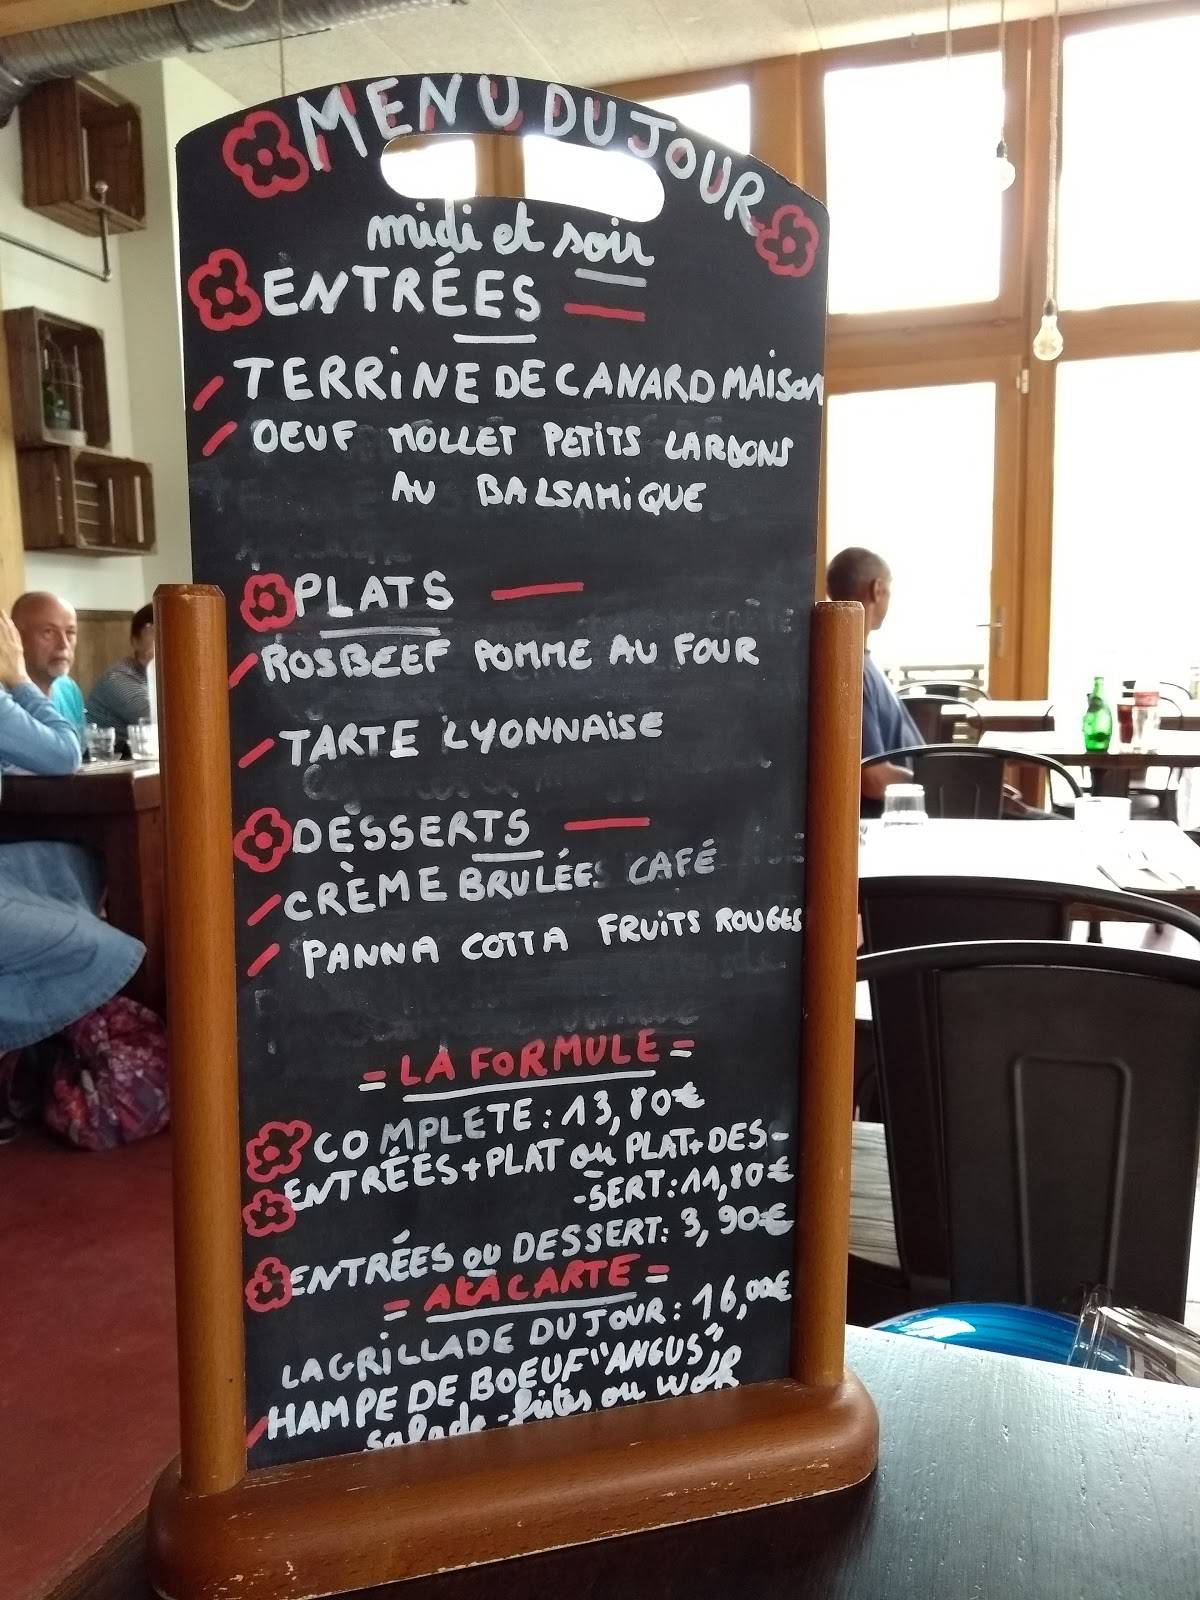 MENU DU JOUR
midi et soir
ENTRÉES
TERRINE DE CANARD MAISON
OEUF MOLLET PETITS LARDONS
AU BALSAMIQUE
PLATS
ROSBEEF POMME AU FOUR
TARTE LYONNAISE
DESSERTS
CRÈME BRULÉE CAFÉ
PANNA COTTA FRUITS ROUGES
= LA FORMULE =
COMPLETE : 13,80€
ENTRÉES + PLAT ou PLAT + DES-
-SERT : 11,80€
ENTRÉES ou DESSERT : 3,90€
= A LA CARTE =
LA GRILLADE DU JOUR : 16,00€
HAMPE DE BOEUF "ANGUS"
salade - frites ou wok